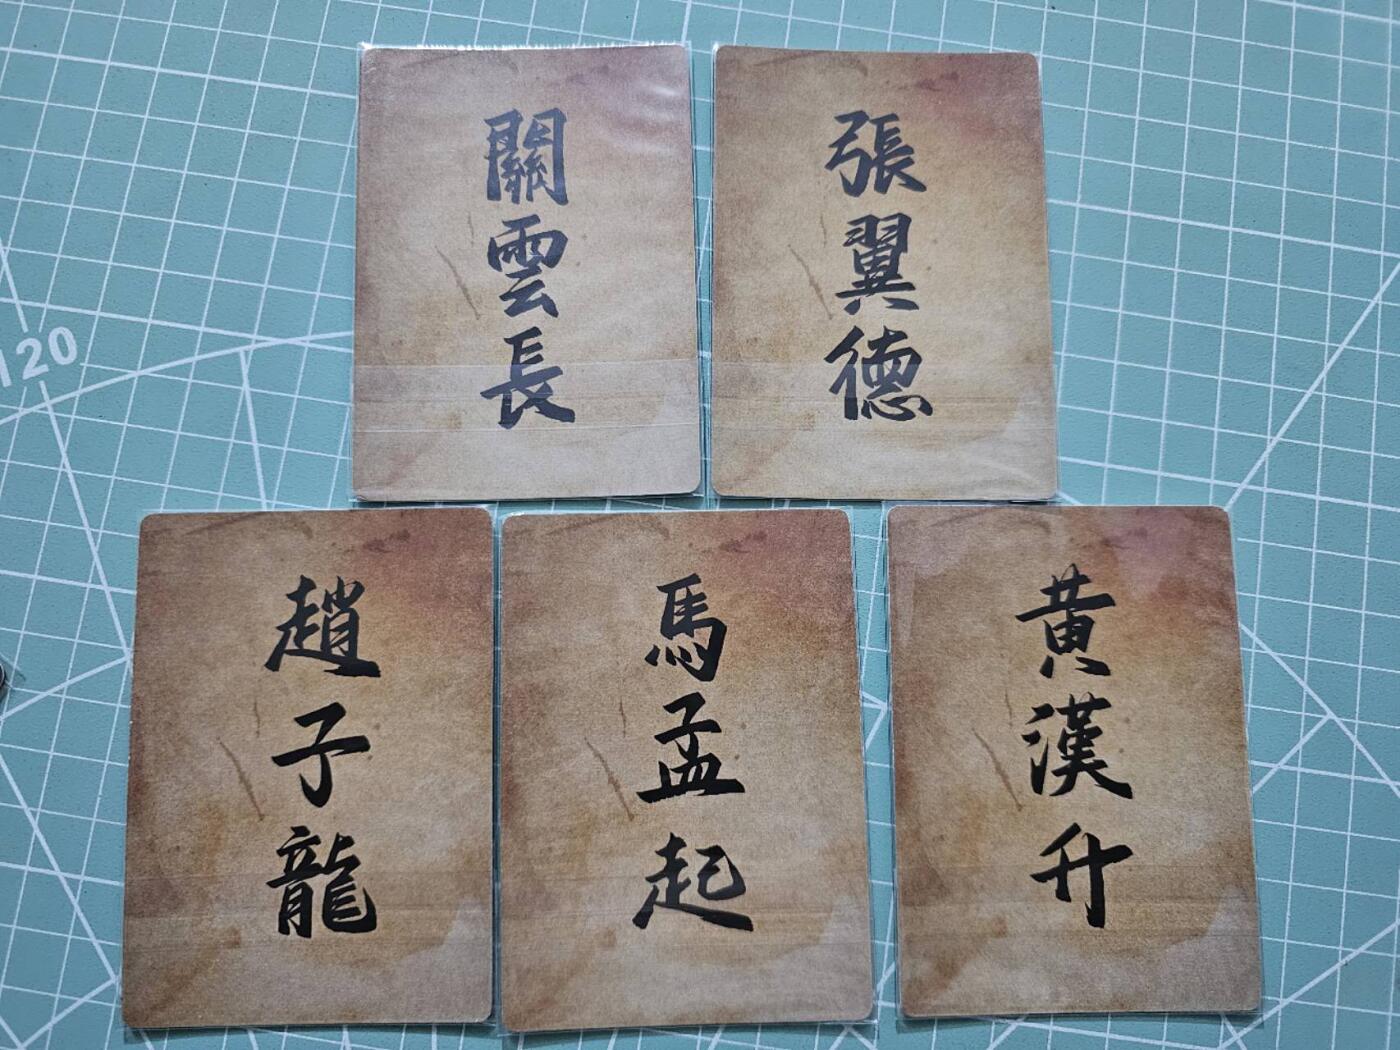 關雲長
張翼德
120
趙子龍
馬孟起
黃漢升